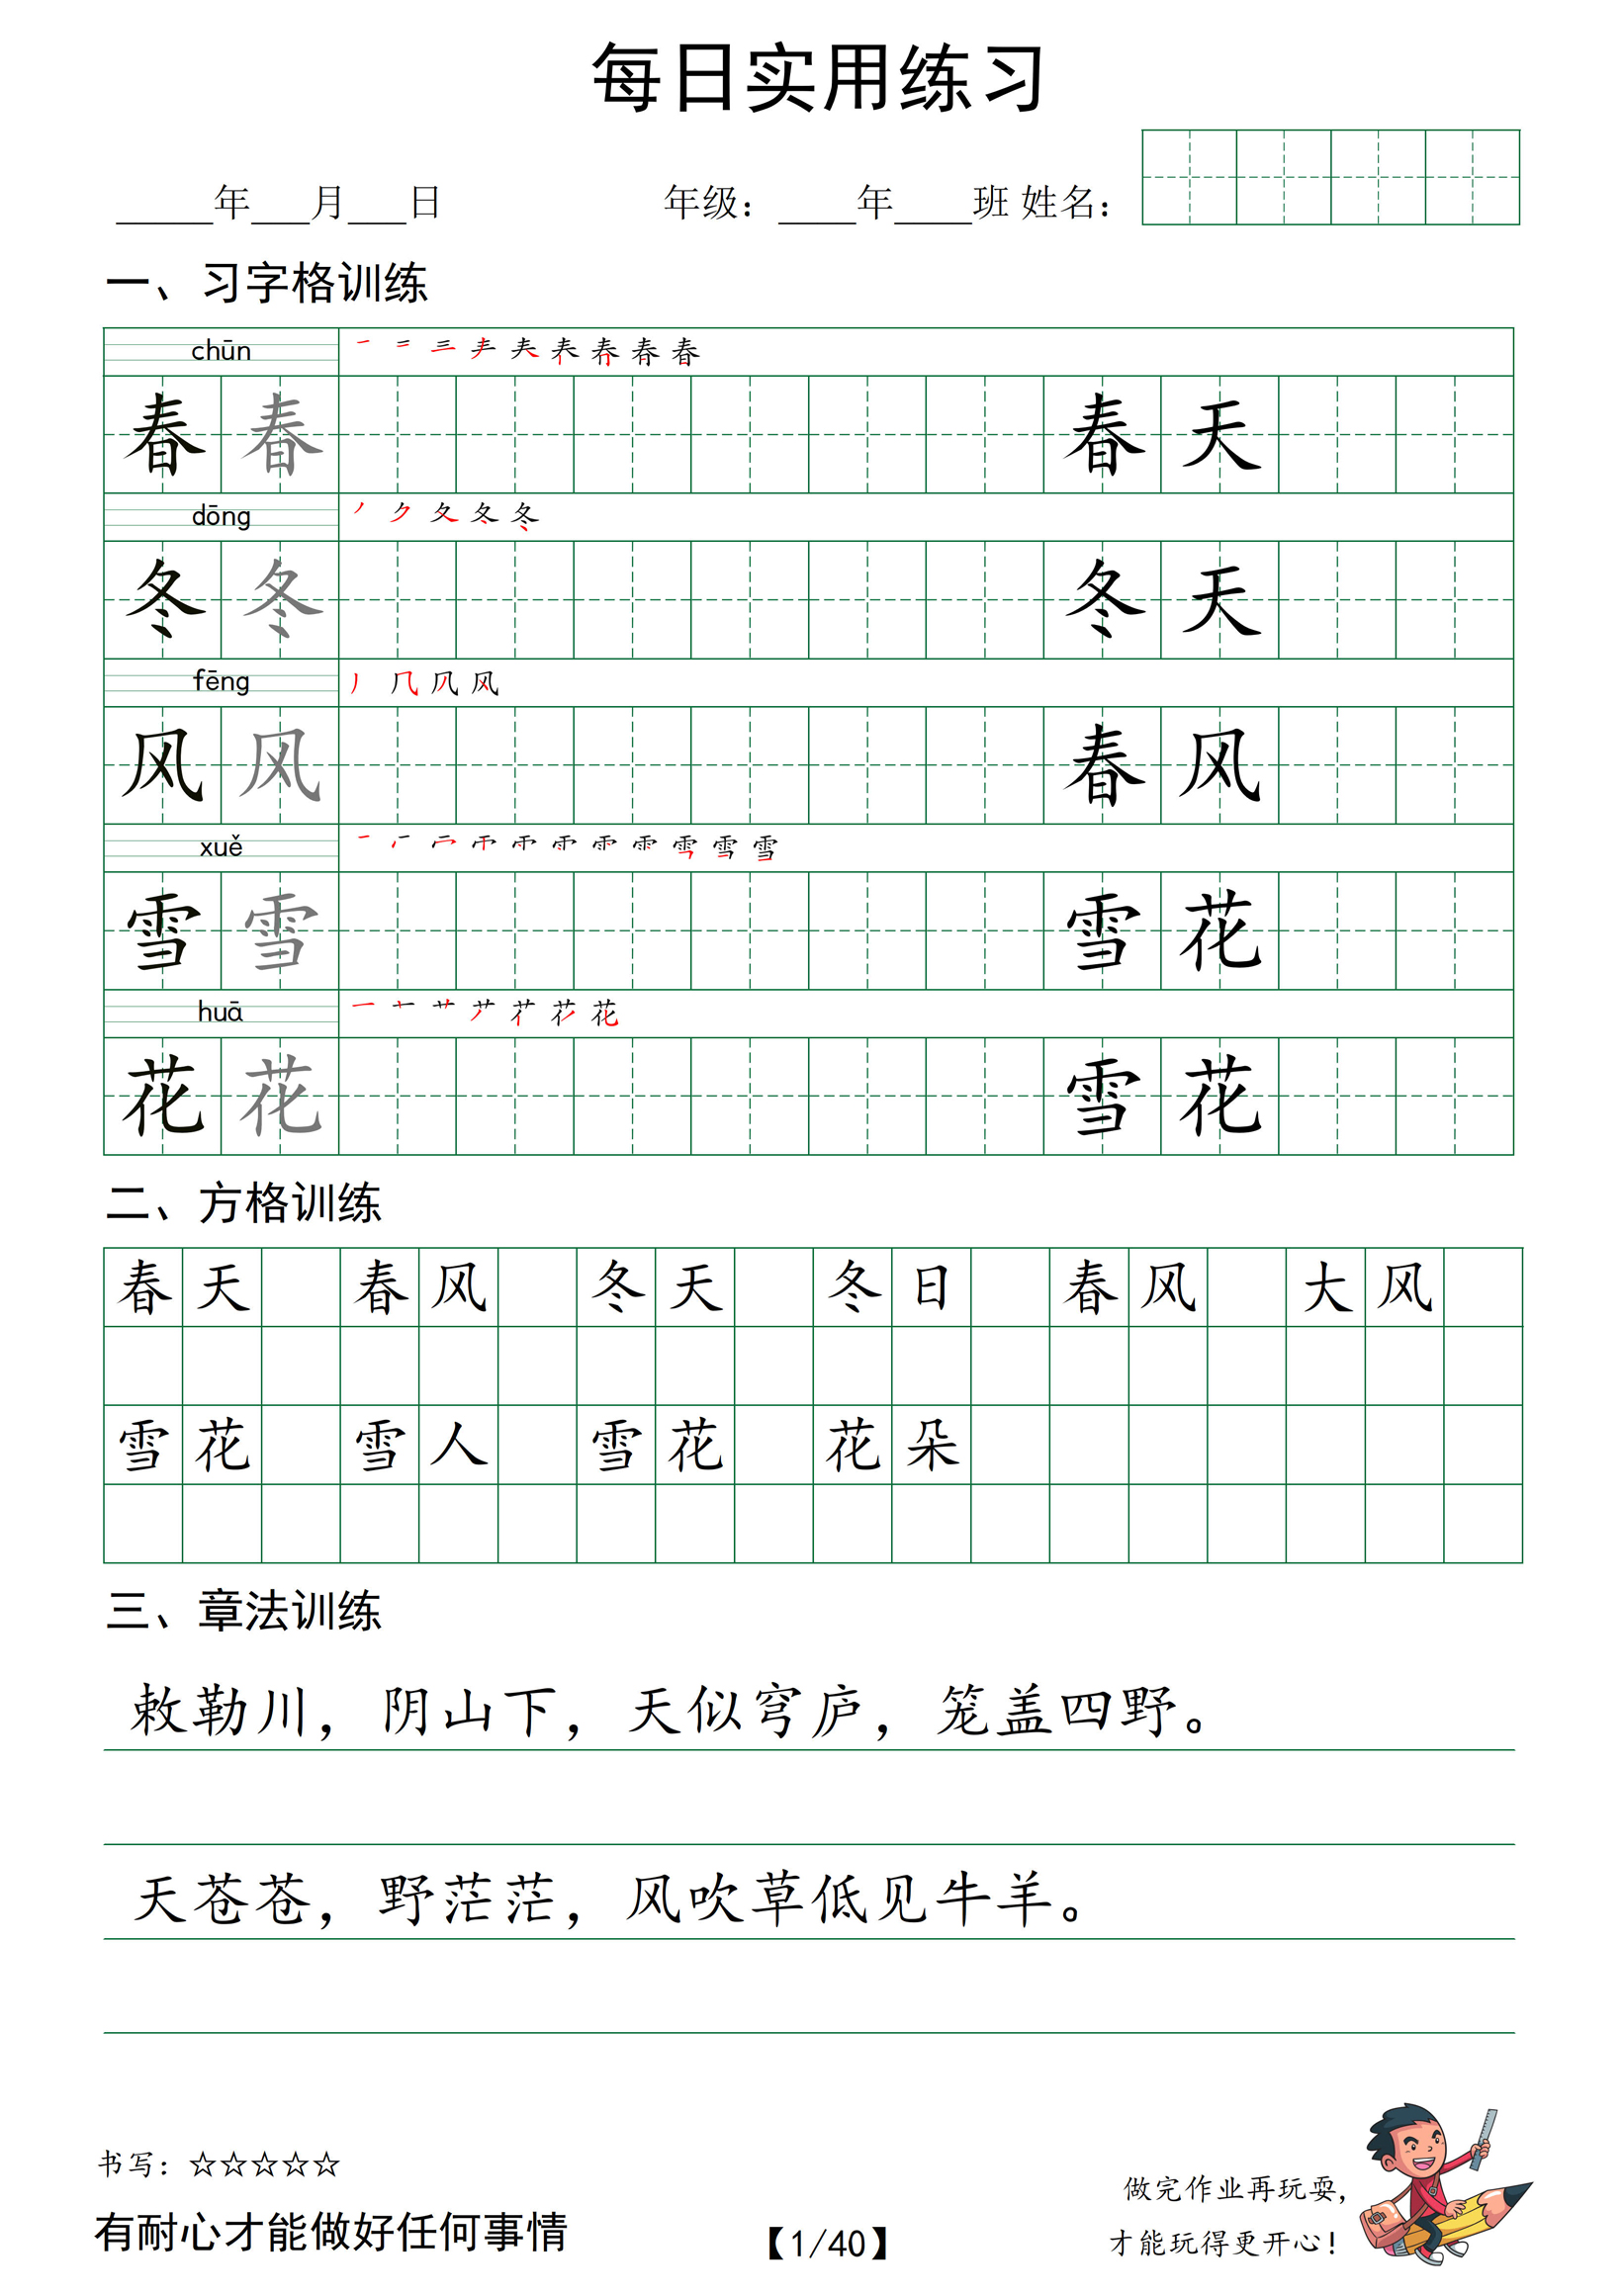 每日实用练习
_____年___月___日 年级：____年____班 姓名：
一、习字格训练
chūn
春 春 春 天
dōng
冬 冬 冬 天
fēng
风 风 春 风
xuě
雪 雪 雪 花
huā
花 花 雪 花
二、方格训练
春天 春风 冬天 冬日 春风 大风
雪花 雪人 雪花 花朵
三、章法训练
敕勒川，阴山下，天似穹庐，笼盖四野。
天苍苍，野茫茫，风吹草低见牛羊。
书写：☆☆☆☆☆
做完作业再玩耍，
有耐心才能做好任何事情
【1/40】
才能玩得更开心！